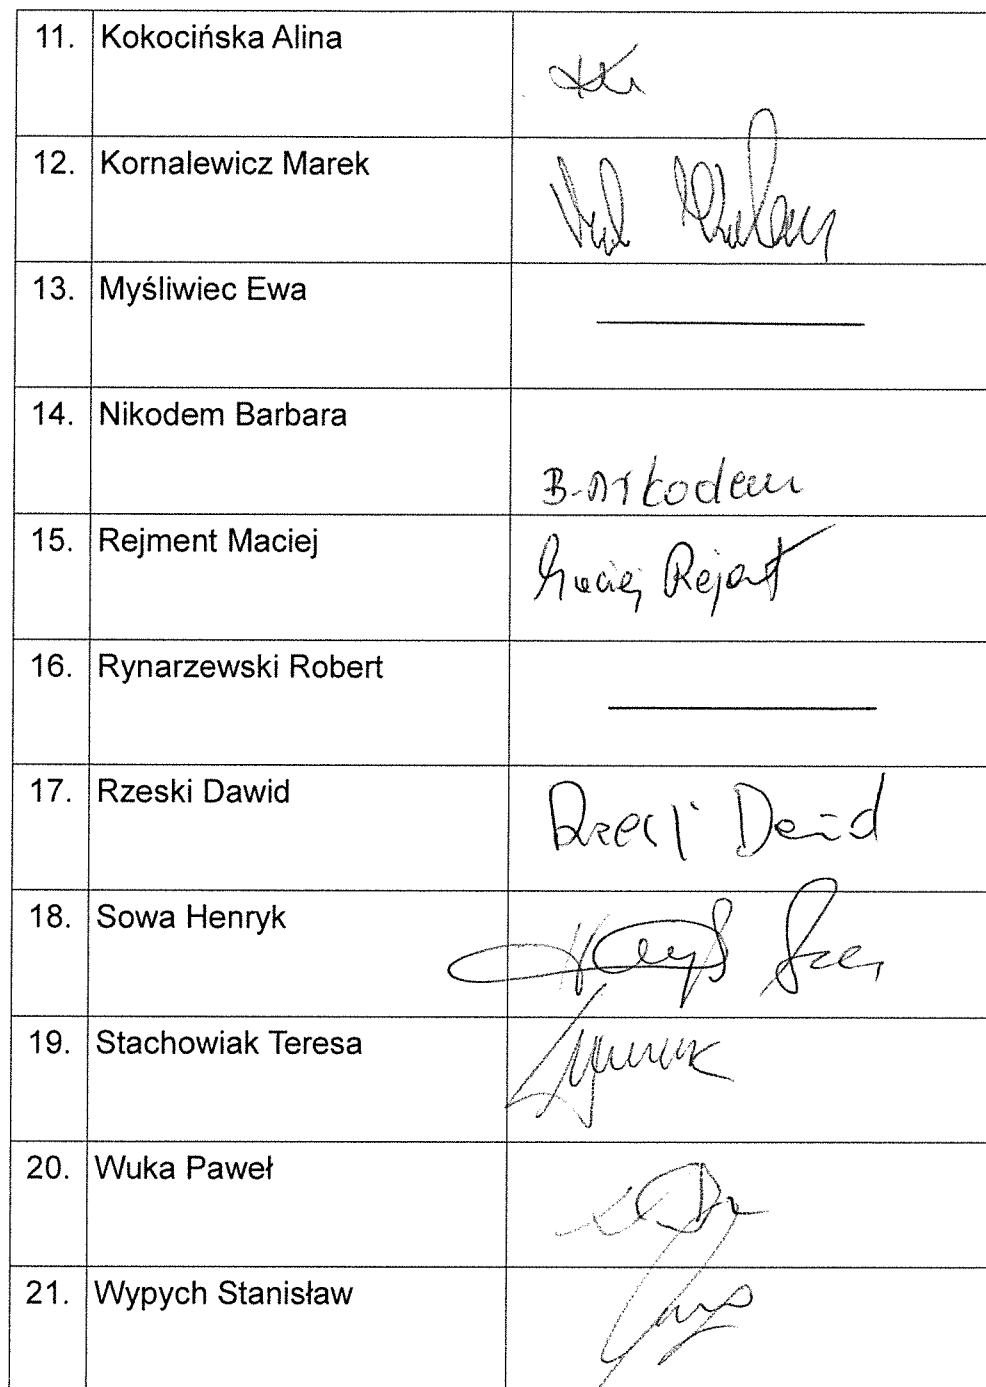 11. Kokocińska Alina
12. Kornalewicz Marek
13. Myśliwiec Ewa
14. Nikodem Barbara
B. Nikodem
15. Rejment Maciej
Maciej Rejment
16. Rynarzewski Robert
17. Rzeski Dawid
Rzeski Dawid
18. Sowa Henryk
19. Stachowiak Teresa
20. Wuka Paweł
21. Wypych Stanisław